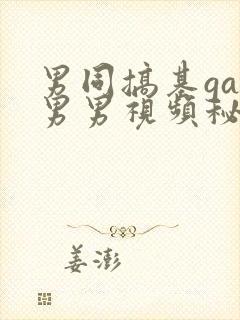 男同搞基ga
男男視頻秘
姜澎